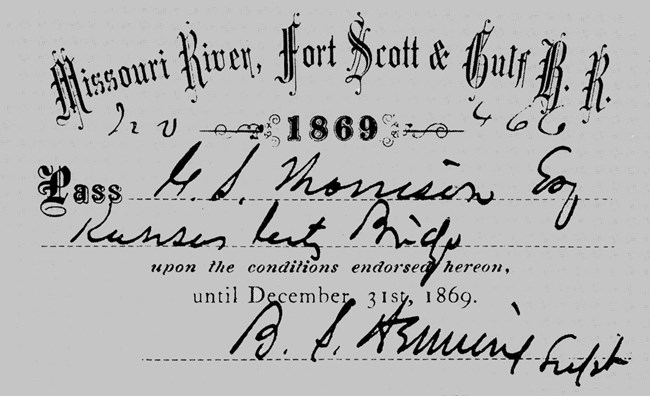 Missouri River, Fort Scott & Gulf R. R.
No 1869 466
Pass G. S. Morrison Esq
Kansas City Bridge
upon the conditions endorsed hereon,
until December 31st, 1869.
B. S. Henning Supt